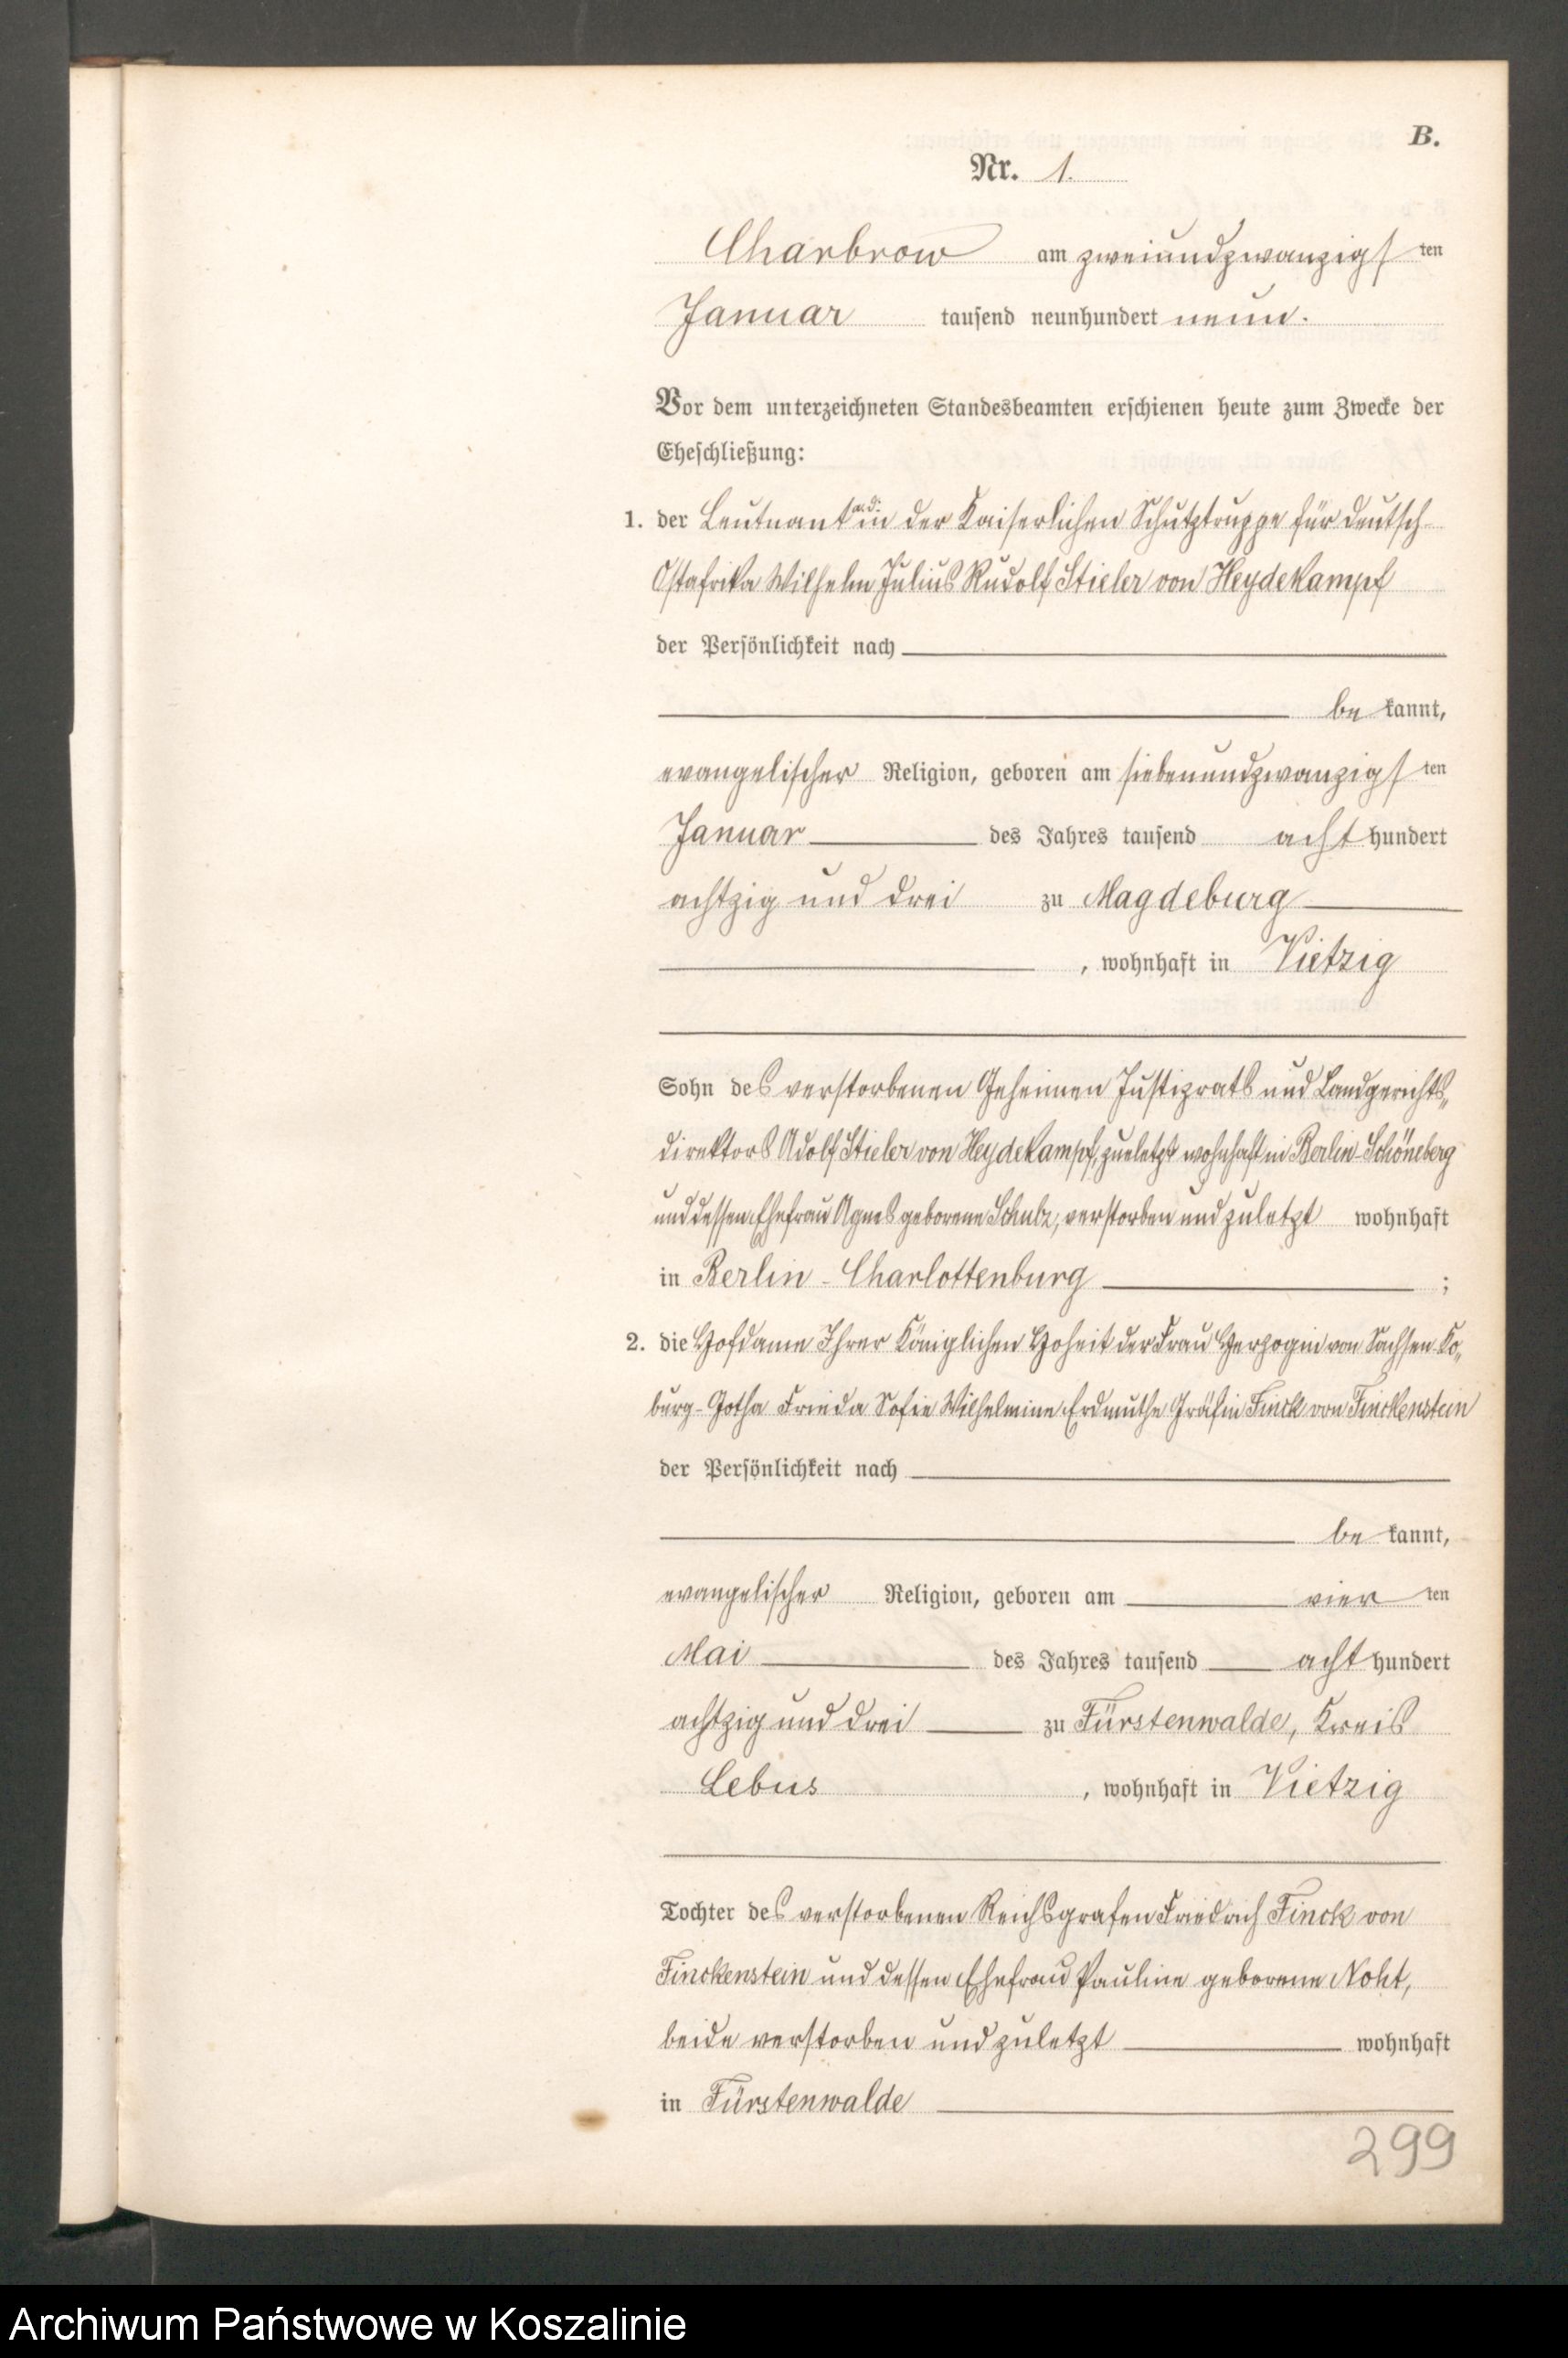 B.
Nr. 1.
Charbrow am zweiundzwanzigsten
Januar tausend neunhundert neun.
Vor dem unterzeichneten Standesbeamten erschienen heute zum Zwecke der
Eheschließung:
1. der Leutnant a. d. in der Kaiserlichen Schutztruppe für Deutsch-
Ostafrika Wilhelm Julius Rudolf Stieler von Heydekampf
der Persönlichkeit nach
be kannt,
evangelischer Religion, geboren am siebenundzwanzigsten
Januar des Jahres tausend acht hundert
achtzig und drei zu Magdeburg
, wohnhaft in Vietzig
Sohn des verstorbenen Geheimen Justizrats und Landgerichts-
direktors Adolf Stieler von Heydekampf, zuletzt wohnhaft in Berlin-Schöneberg
und dessen Ehefrau Agnes geborene Schulz, verstorben und zuletzt wohnhaft
in Berlin-Charlottenburg ;
2. die Hofdame Ihrer Königlichen Hoheit der Frau Herzogin von Sachsen Ko-
burg-Gotha Frieda Sofie Wilhelmine Erdmuthe Gräfin Finck von Finckenstein
der Persönlichkeit nach
be kannt,
evangelischer Religion, geboren am vier ten
Mai des Jahres tausend acht hundert
achtzig und drei zu Fürstenwalde, Kreis
Lebus , wohnhaft in Vietzig
Tochter des verstorbenen Reichsgrafen Friedrich Finck von
Finckenstein und dessen Ehefrau Pauline geborene Noht,
beide verstorben und zuletzt wohnhaft
in Fürstenwalde
299
Archiwum Państwowe w Koszalinie